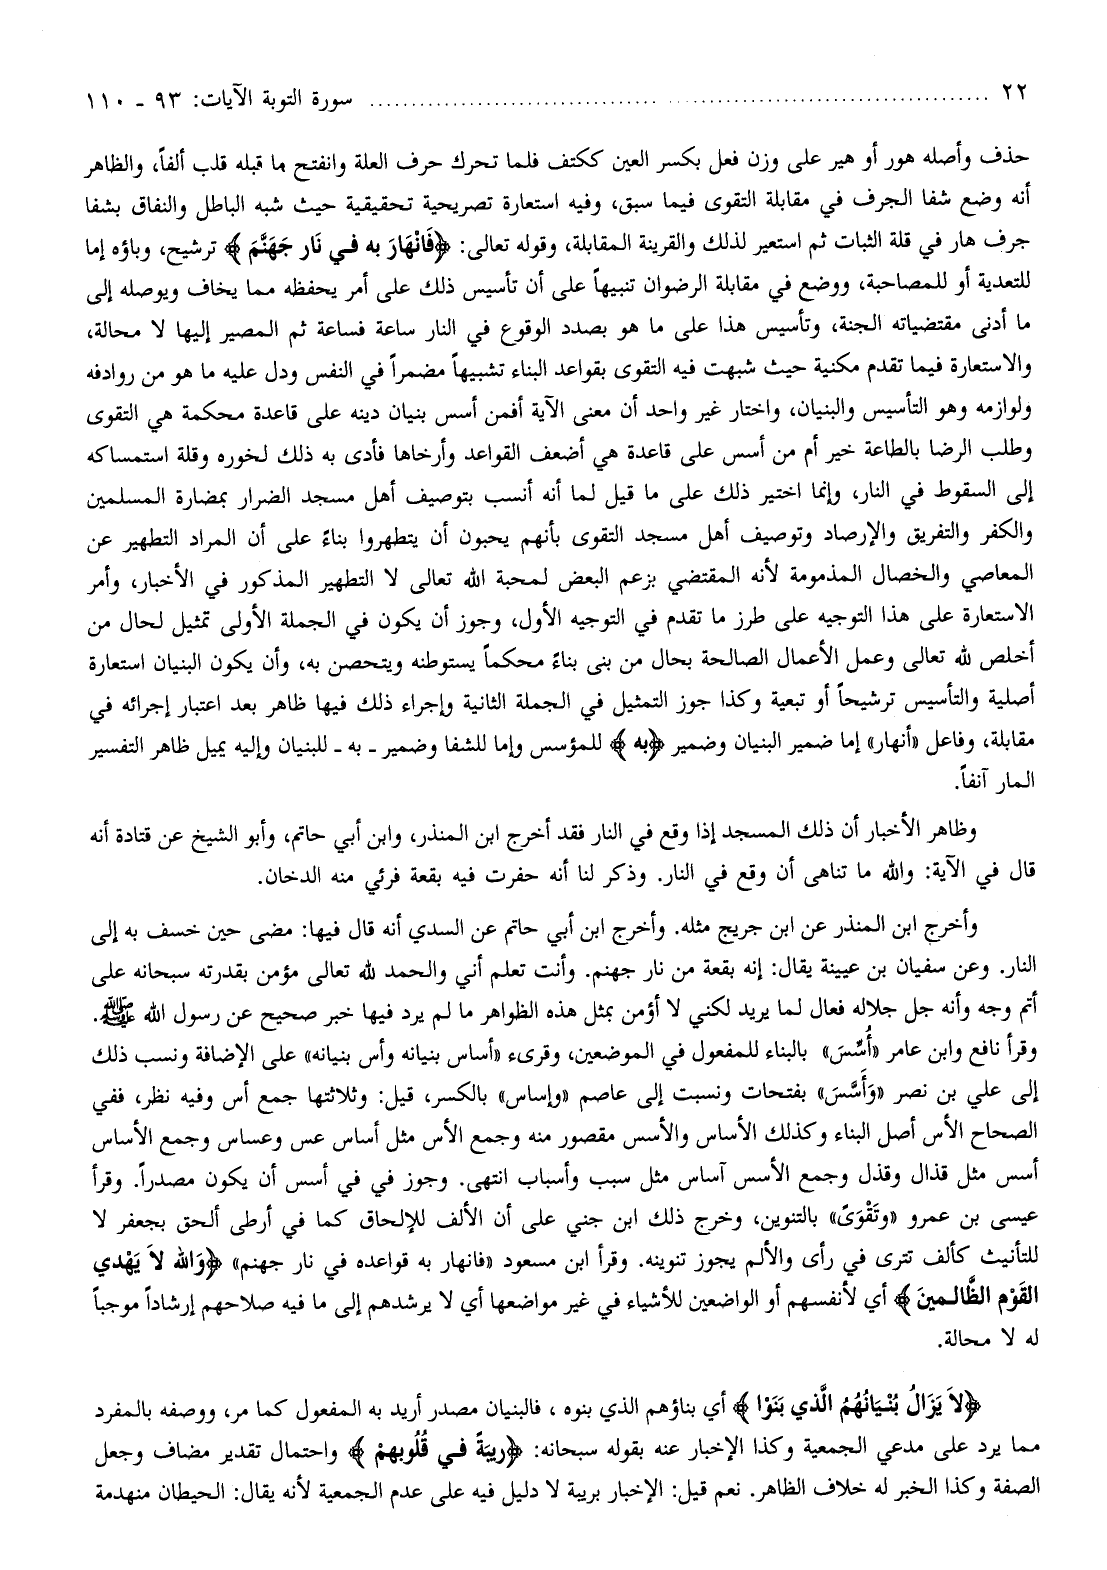 ٢٢ ........................................................................ سورة التوبة الآيات: ٩٣ ـ ١١٠
حذف وأصله هور أو هير على وزن فعل بكسر العين ككتف فلما تحرك حرف العلة وانفتح ما قبله قلب ألفاً، والظاهر
أنه وضع شفا الجرف في مقابلة التقوى فيما سبق، وفيه استعارة تصريحية تحقيقية حيث شبه الباطل والنفاق بشفا
جرف هار في قلة الثبات ثم استعير لذلك والقرينة المقابلة، وقوله تعالى: ﴿فَانْهَارَ به في نَار جَهَنَّمَ﴾ ترشيح، وباؤه إما
للتعدية أو للمصاحبة، ووضع في مقابلة الرضوان تنبيهاً على أن تأسيس ذلك على أمر يحفظه مما يخاف ويوصله إلى
ما أدنى مقتضياته الجنة، وتأسيس هذا على ما هو بصدد الوقوع في النار ساعة فساعة ثم المصير إليها لا محالة،
والاستعارة فيما تقدم مكنية حيث شبهت فيه التقوى بقواعد البناء تشبيهاً مضمراً في النفس ودل عليه ما هو من روادفه
ولوازمه وهو التأسيس والبنيان، واختار غير واحد أن معنى الآية أفمن أسس بنيان دينه على قاعدة محكمة هي التقوى
وطلب الرضا بالطاعة خير أم من أسس على قاعدة هي أضعف القواعد وأرخاها فأدى به ذلك لخوره وقلة استمساكه
إلى السقوط في النار، وإنما اختير ذلك على ما قيل لما أنه أنسب بتوصيف أهل مسجد الضرار بمضارة المسلمين
والكفر والتفريق والإرصاد وتوصيف أهل مسجد التقوى بأنهم يحبون أن يتطهروا بناءً على أن المراد التطهير عن
المعاصي والخصال المذمومة لأنه المقتضي بزعم البعض لمحبة الله تعالى لا التطهير المذكور في الأخبار، وأمر
الاستعارة على هذا التوجيه على طرز ما تقدم في التوجيه الأول، وجوز أن يكون في الجملة الأولى تمثيل لحال من
أخلص لله تعالى وعمل الأعمال الصالحة بحال من بنى بناءً محكماً يستوطنه ويتحصن به، وأن يكون البنيان استعارة
أصلية والتأسيس ترشيحاً أو تبعية وكذا جوز التمثيل في الجملة الثانية وإجراء ذلك فيها ظاهر بعد اعتبار إجرائه في
مقابلة، وفاعل «أنهار» إما ضمير البنيان وضمير ﴿به﴾ للمؤسس وإما للشفا وضمير ـ به ـ للبنيان وإليه يميل ظاهر التفسير
المار آنفاً.
وظاهر الأخبار أن ذلك المسجد إذا وقع في النار فقد أخرج ابن المنذر، وابن أبي حاتم، وأبو الشيخ عن قتادة أنه
قال في الآية: والله ما تناهى أن وقع في النار. وذكر لنا أنه حفرت فيه بقعة فرئي منه الدخان.
وأخرج ابن المنذر عن ابن جريج مثله. وأخرج ابن أبي حاتم عن السدي أنه قال فيها: مضى حين خسف به إلى
النار. وعن سفيان بن عيينة يقال: إنه بقعة من نار جهنم. وأنت تعلم أني والحمد لله تعالى مؤمن بقدرته سبحانه على
أتم وجه وأنه جل جلاله فعال لما يريد لكني لا أؤمن بمثل هذه الظواهر ما لم يرد فيها خبر صحيح عن رسول الله ﷺ.
وقرأ نافع وابن عامر «أُسِّسَ» بالبناء للمفعول في الموضعين، وقرىء «أساس بنيانه وأس بنيانه» على الإضافة ونسب ذلك
إلى علي بن نصر «وَأَسَّسَ» بفتحات ونسبت إلى عاصم «وإساس» بالكسر، قيل: وثلاثتها جمع أس وفيه نظر، ففي
الصحاح الأس أصل البناء وكذلك الأساس والأسس مقصور منه وجمع الأس مثل أساس عس وعساس وجمع الأساس
أسس مثل قذال وقذل وجمع الأسس آساس مثل سبب وأسباب انتهى. وجوز في في أسس أن يكون مصدراً. وقرأ
عيسى بن عمرو «وتَقْوَىً» بالتنوين، وخرج ذلك ابن جني على أن الألف للإلحاق كما في أرطى ألحق بجعفر لا
للتأنيث كألف تترى في رأى والألم يجوز تنوينه. وقرأ ابن مسعود «فانهار به قواعده في نار جهنم» ﴿وَالله لاَ يَهْدي
القَوْم الظَّالمينَ﴾ أي لأنفسهم أو الواضعين للأشياء في غير مواضعها أي لا يرشدهم إلى ما فيه صلاحهم إرشاداً موجباً
له لا محالة.
﴿لاَ يَزَالُ بُنْيَانُهُمُ الَّذي بَنَوْا﴾ أي بناؤهم الذي بنوه ، فالبنيان مصدر أريد به المفعول كما مر، ووصفه بالمفرد
مما يرد على مدعي الجمعية وكذا الإخبار عنه بقوله سبحانه: ﴿ريبَةً في قُلُوبهمْ﴾ واحتمال تقدير مضاف وجعل
الصفة وكذا الخبر له خلاف الظاهر. نعم قيل: الإخبار بريبة لا دليل فيه على عدم الجمعية لأنه يقال: الحيطان منهدمة